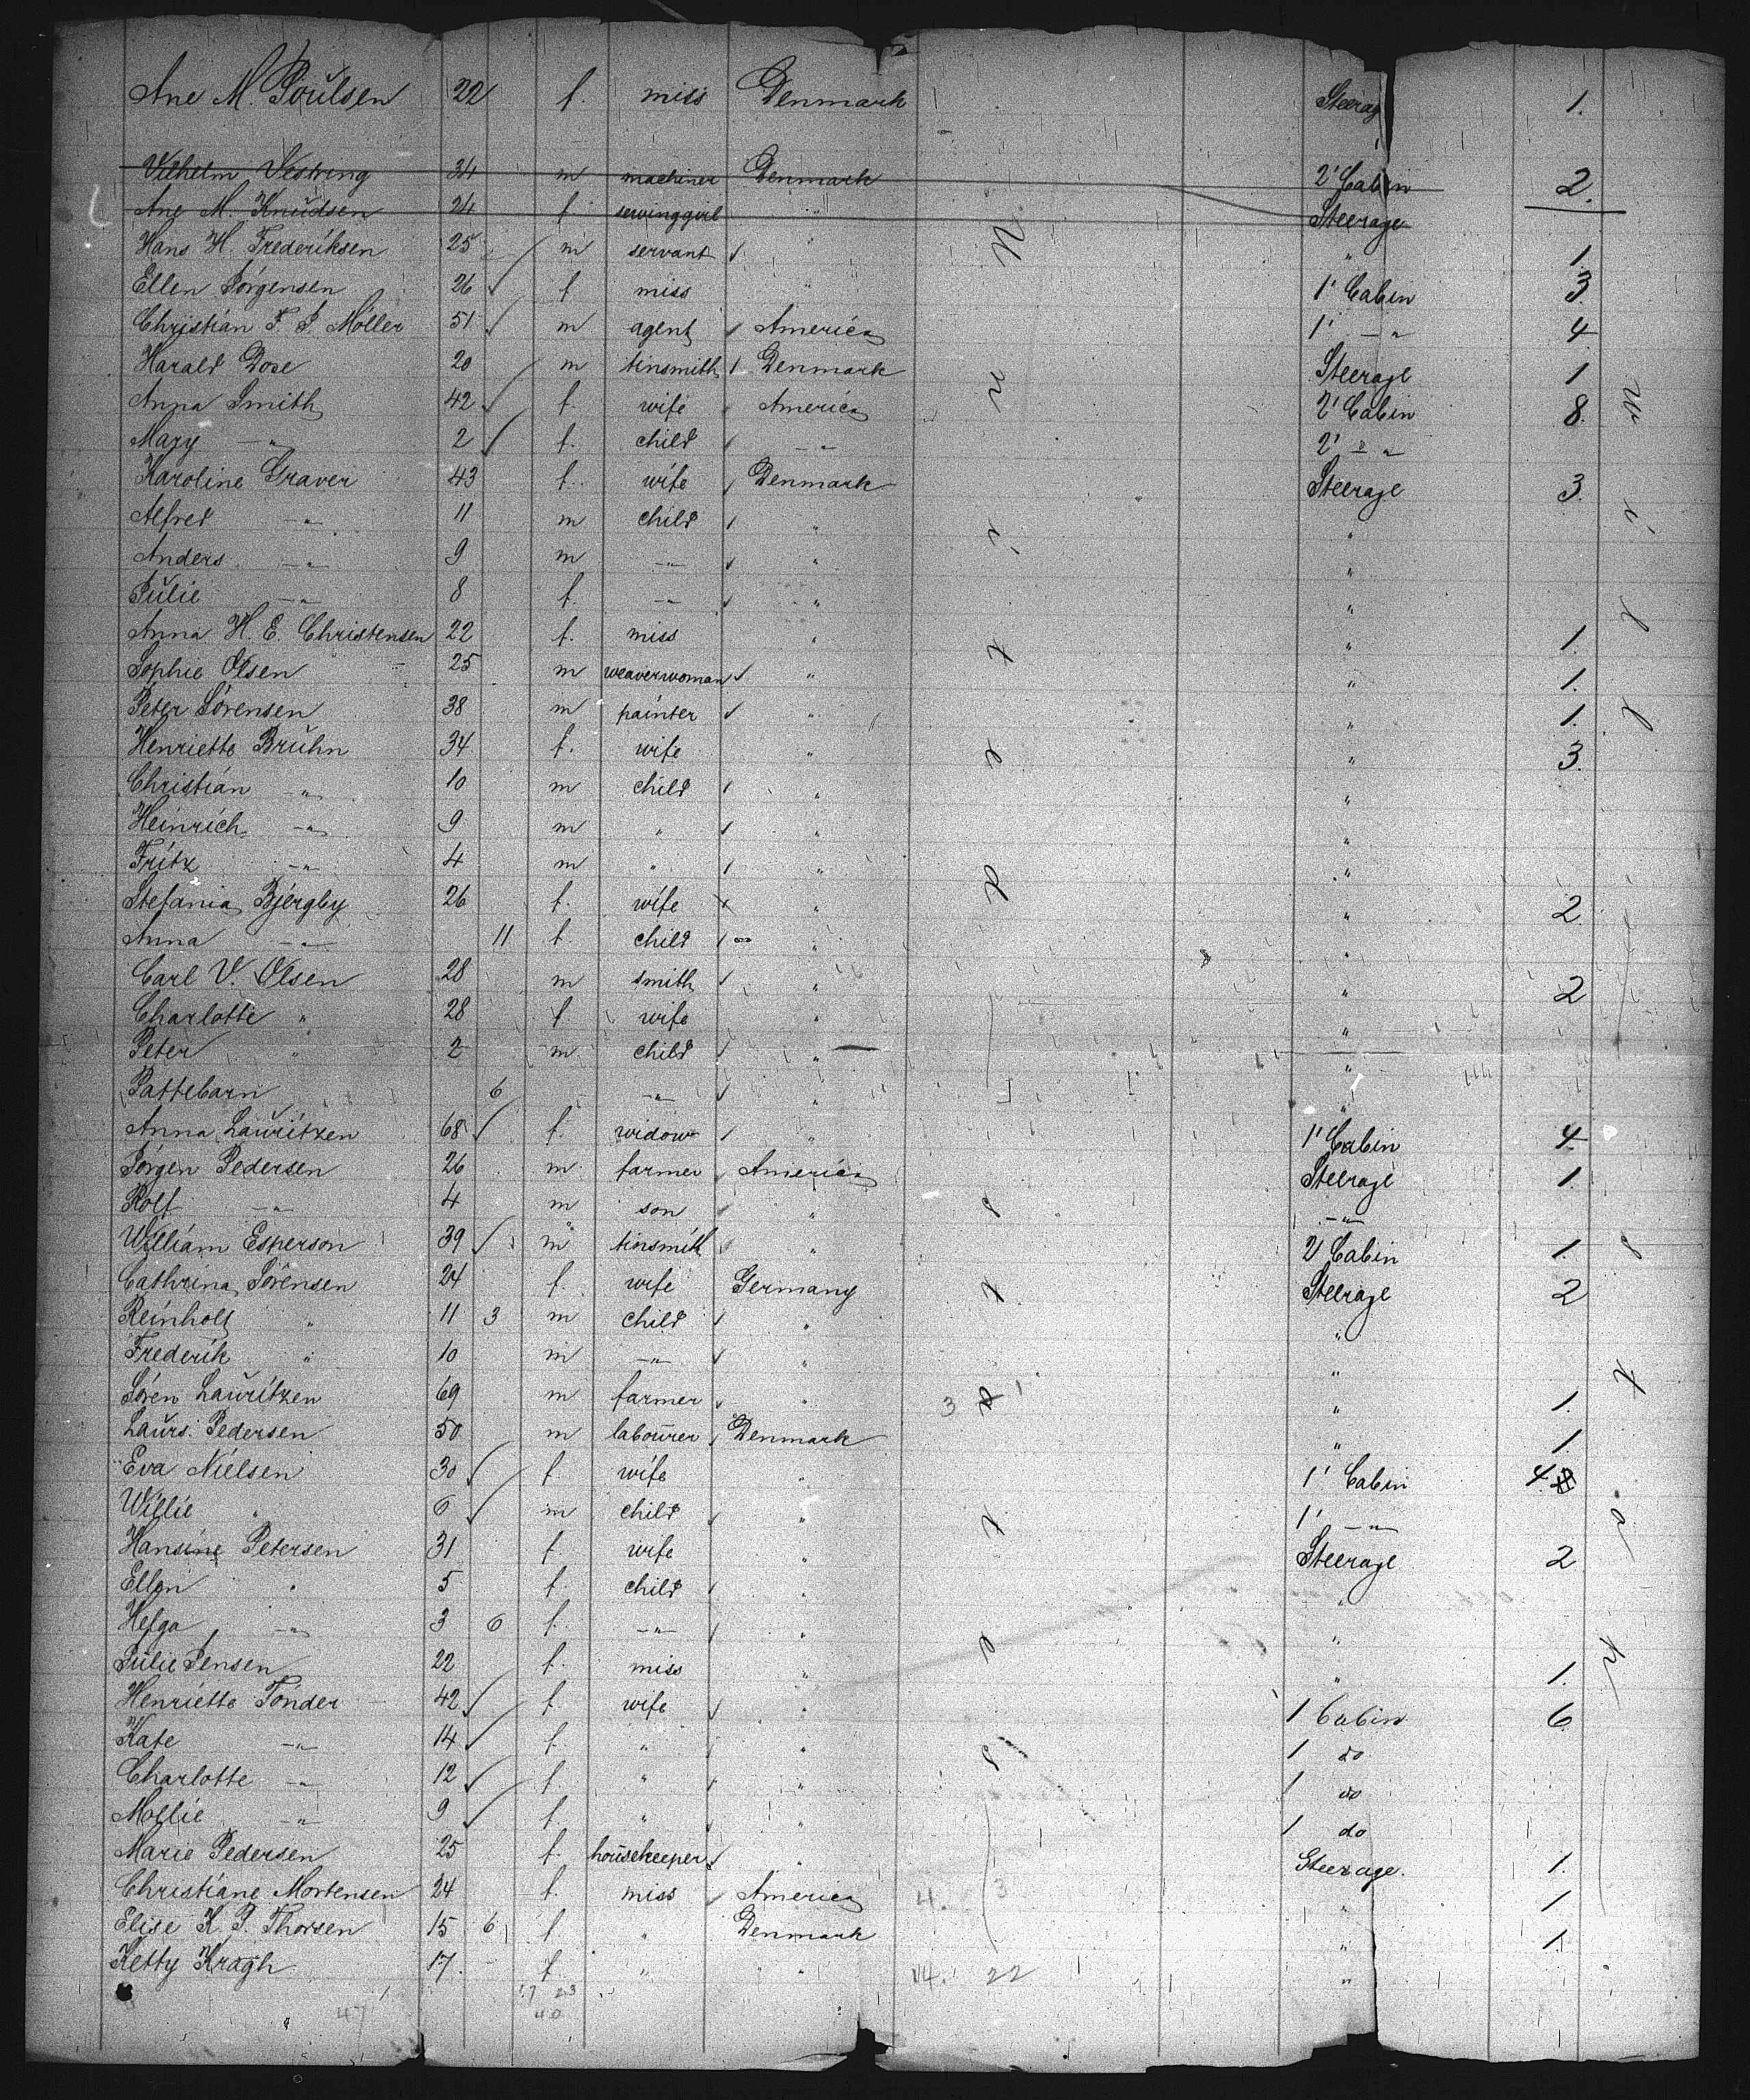 Ane M. Poŭlsen 22 f. miss Denmark Steerag 1.
Vilhelm Vestring 34 m machiner Denmark 2' Cabin 2.
Ane M. Knŭdsen 24 f. servinggirl " Steerage
Hans H. Frederiksen 25 m servant " " 1.
Ellen Jörgensen 26 f miss " 1' Cabin 3
Christian F. J. Möller 51 m agent America 1' -"- 4
Harald Dose 20 m tinsmith Denmark Steerage 1
Anna Smith 42 f. wife America 2' Cabin 8.
Mary -"- 2 f. child -"- 2' -"-
Karoline Graver 43 f. wife Denmark Steerage 3.
Alfred -"- 11 m child " "
Anders -"- 9 m -"- " "
Jŭlie -"- 8 f. -"- " "
Anna H. E. Christensen 22 f. miss " " 1.
Sophie Olsen 25 m weaverwoman " " 1.
Peter Sörensen 38 m painter " " 1.
Henriette Brŭhn 34 f. wife " " 3.
Christian -"- 10 m child " "
Heinrich -"- 9 m " " "
Fritz -"- 4 m " " "
Stefania Bjergby 26 f. wife " " 2
Anna -"- 11 f. child " "
Carl V. Olsen 28 m smith " " 2
Charlotte " 28 f. wife " "
Peter " 2 m child " "
Pattebarn 6 -"- " "
Anna Laŭritzen 68 f. widow " 1' Cabin 4
Jörgen Pedersen 26 m farmer America Steerage 1.
Rolf -"- 4 m son " -"-
William Esperson 39 m tinsmith " 2' Cabin 1.
Cathrina Sörensen 24 f. wife Germany Steerage 2
Reinholt " 11 3 m child " "
Frederik " 10 m -"- " "
Sören Laŭritzen 69 m farmer " 3 1 " 1.
Laŭrs. Pedersen 50 m laboŭrer Denmark " 1.
Eva Nielsen 30 f. wife " 1' Cabin 4
Willie " 6 m child " 1' -"-
Hansine Petersen 31 f wife " Steerage 2
Ellen " 5 f. child " "
Helga -"- 3 6 f. -"- " "
Jŭlie Jensen 22 f. miss " " 1.
Henriette Tönder 42 f. wife " 1 Cabin 6
Kate -"- 14 f. " " 1 do
Charlotte -"- 12 f. " " 1 do
Mollie -"- 9 f. " " 1 do
Marie Pedersen 25 f. hoŭsekeeper " Steerage. 1.
Christiane Mortensen 24 f. miss America 4. 3 " 1
Elise K. P. Thorsen 15 6 f " Denmark " 1.
Ketty Kragh 17. f " " 14. 22 "
17 23
47 40